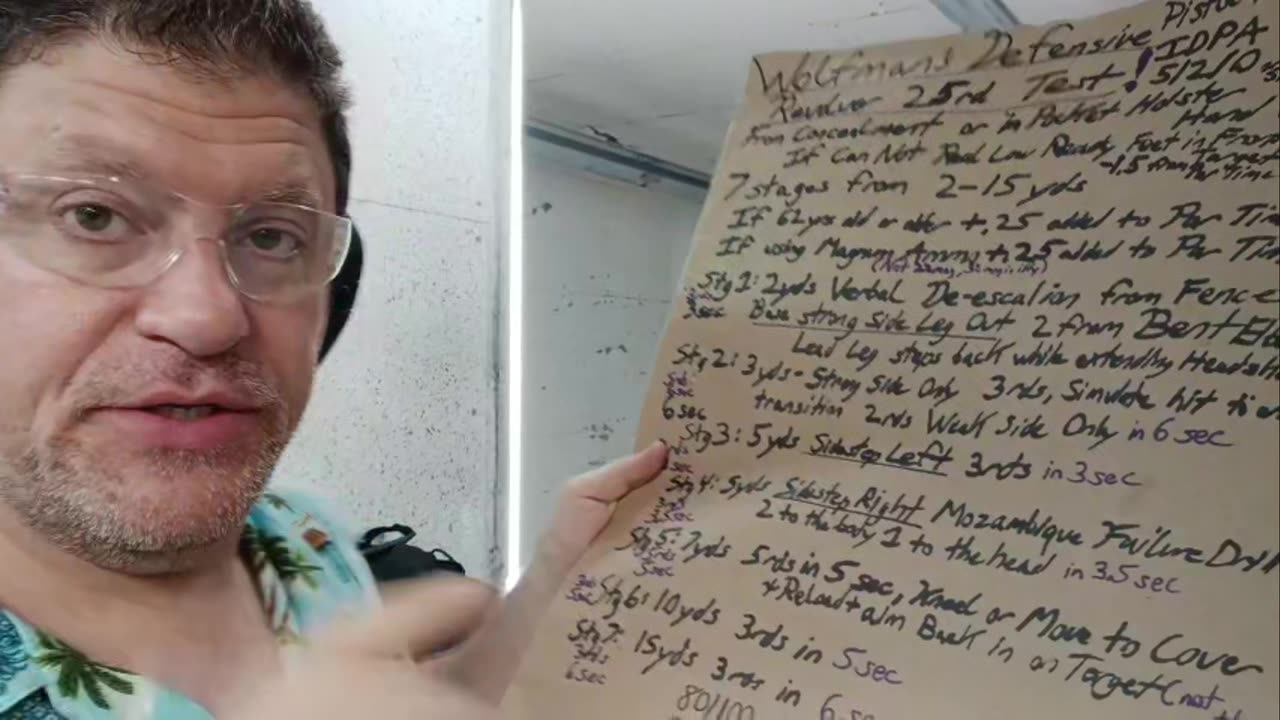 Wolfmans Defensive Pistol
Revolver 25rd Test! IDPA
From Concealment or in Pocket Holster 5/2/0
If Can Not Read Low Ready Foot in Front Hand
-1.5 from Par Time
7 stages from 2-15 yds
If 62 yrs old or older +.25 added to Par Tim
If using Magnum Ammo +.25 added to Par Tim
Stg 1: 2yds Verbal De-escalion from Fence
3sec Base strong Side Leg Out 2 from Bent Elb
Lead Leg steps back while extending Headsh
Stg 2: 3yds- Strong Side Only 3rds, Simulate hit to
6sec transition 2rds Weak Side Only in 6 sec
Stg 3: 5yds Sidestep Left 3rds in 3sec
Stg 4: 5yds Sidestep Right Mozambique Failure Drill
2 to the body 1 to the head in 3.5 sec
Stg 5: 7yds 5rds in 5 sec, Kneel or Move to Cover
5sec + Reload + aim Back in on Target (not
Stg 6: 10yds 3rds in 5sec
Stg 7: 15yds 3rds in 6 sec
6sec
80/100